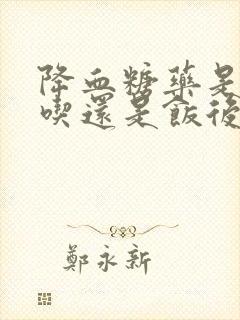 降血糖藥是
喫還是飯後
鄭永新